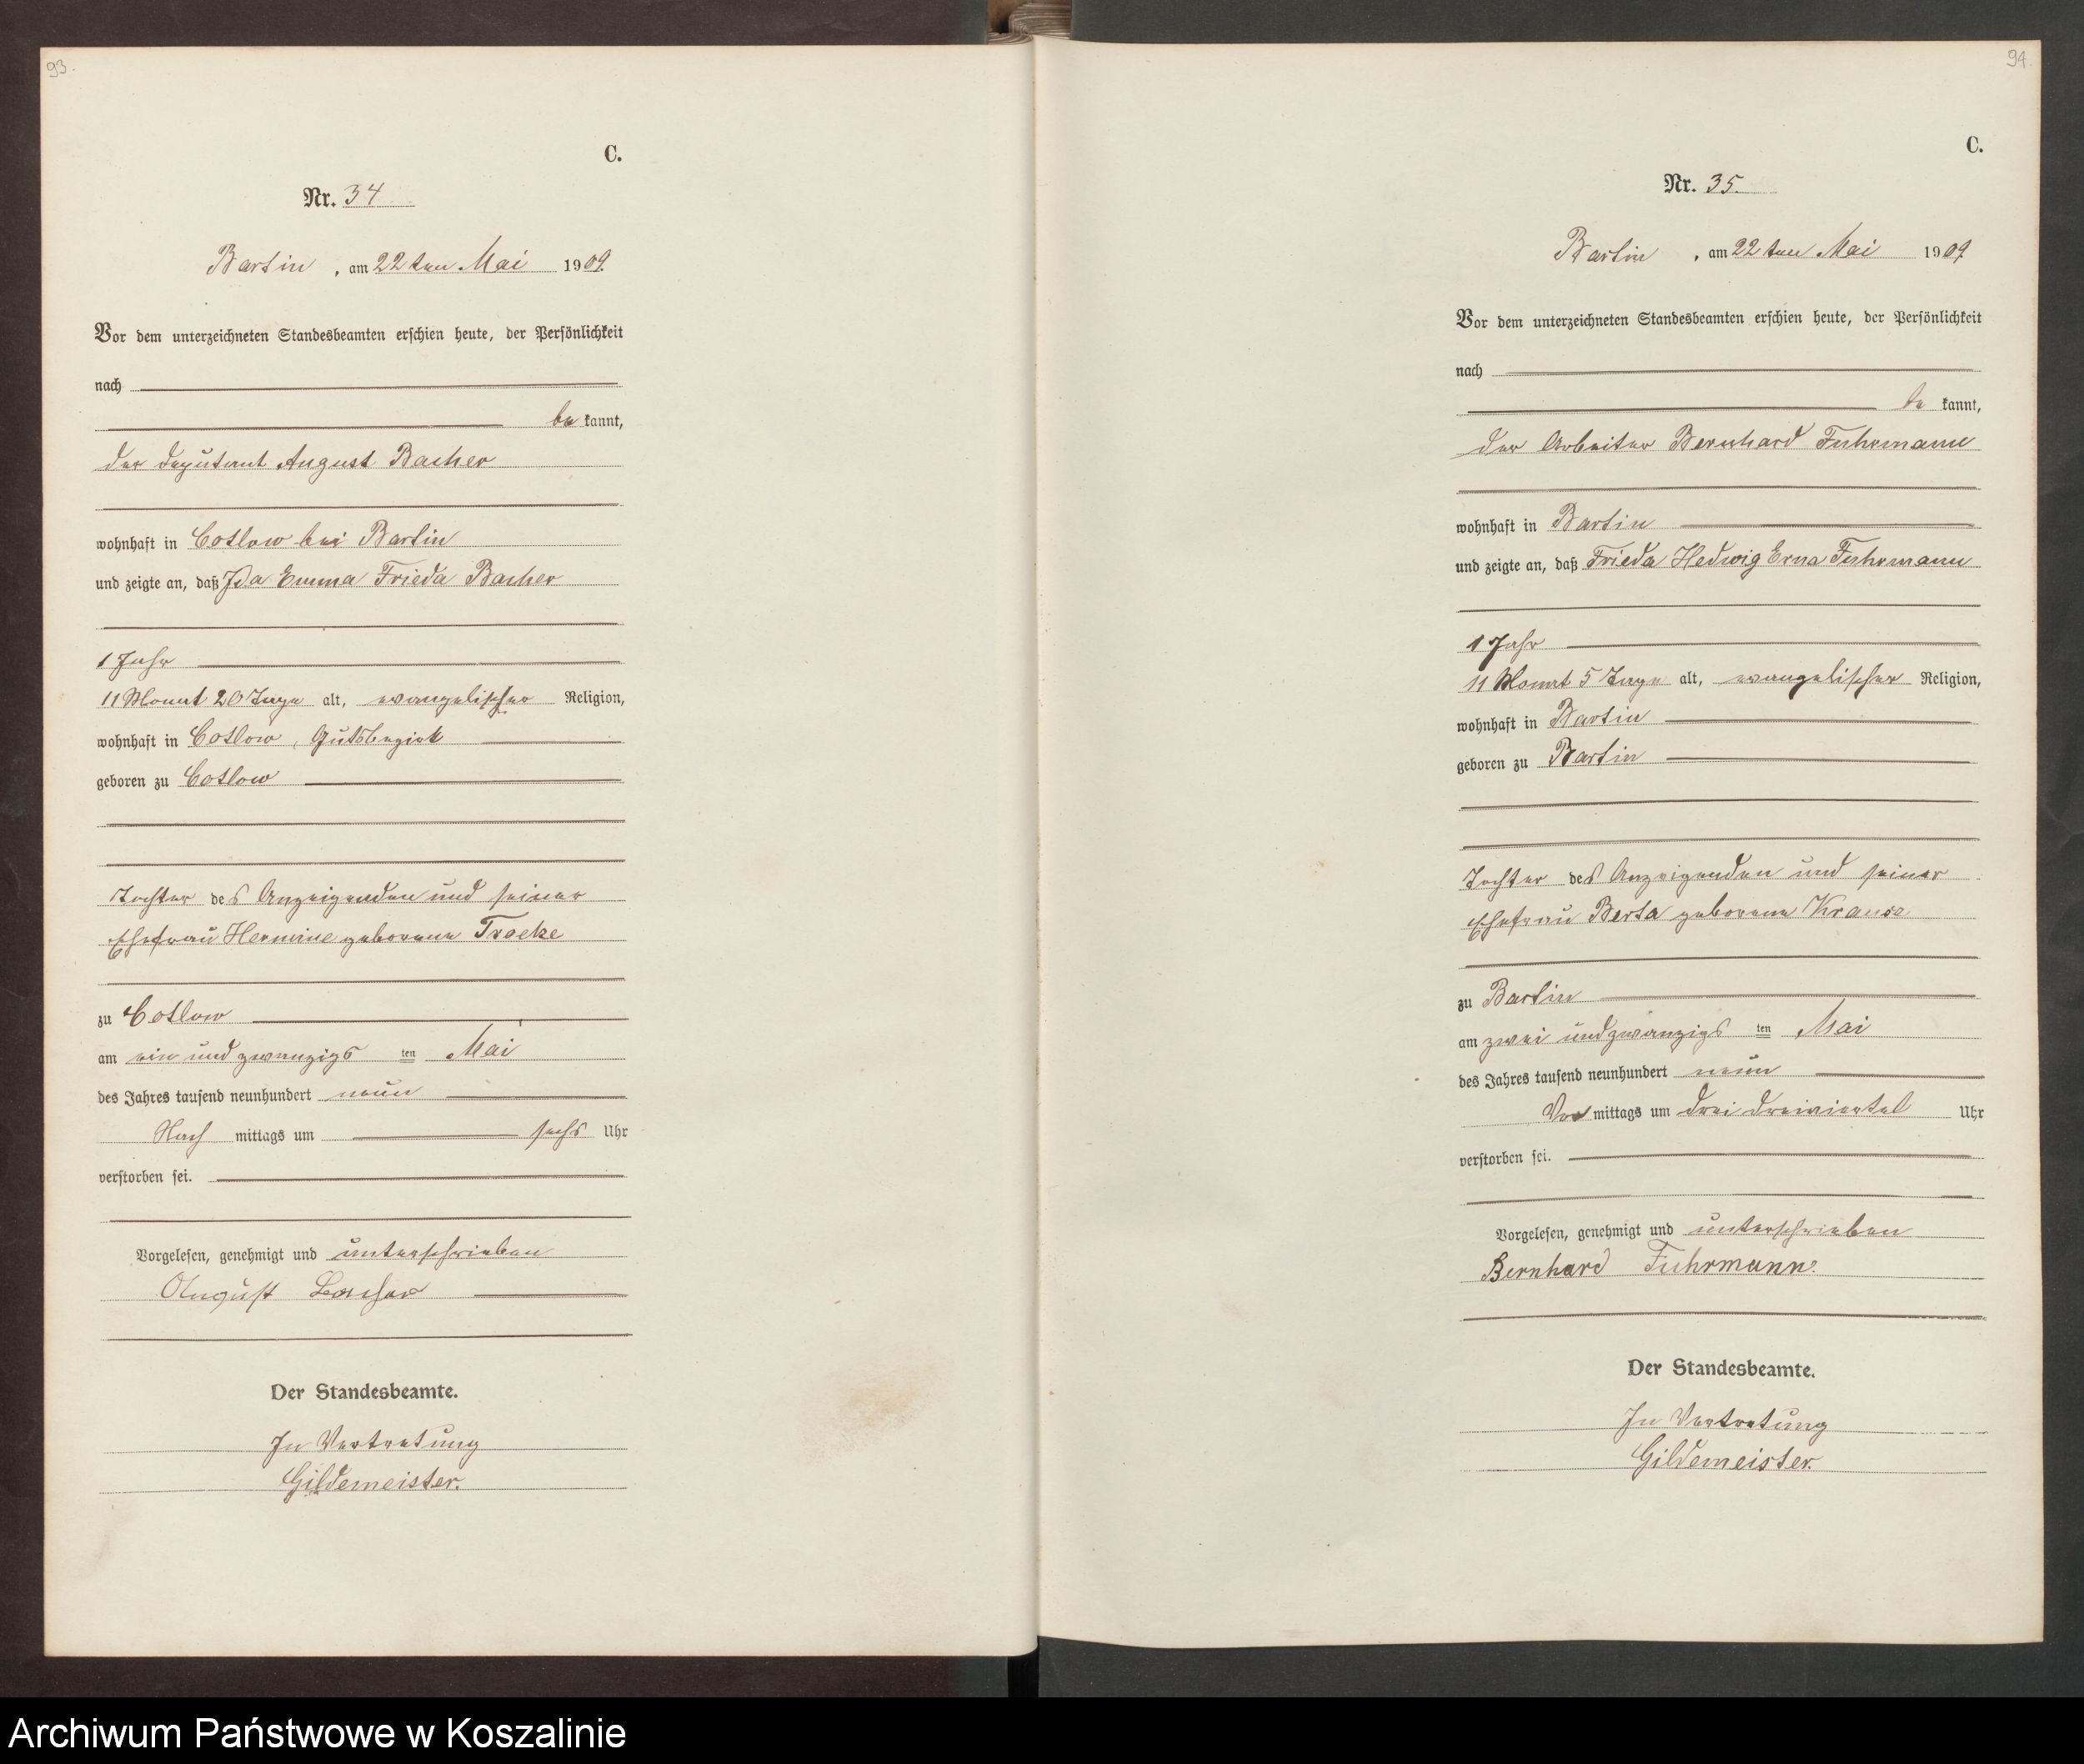 93.
C.
Nr. 34
Bartin, am 22ten Mai 1909.
Vor dem unterzeichneten Standesbeamten erschien heute, der Persönlichkeit
nach
be kannt,
der Deputant August Bacher
wohnhaft in Cotlow bei Bartin
und zeigte an, daß Ida Emma Frieda Bacher
1 Jahr
11 Monat 20 Tage alt, evangelischer Religion,
wohnhaft in Cotlow, Gutsbezirk
geboren zu Cotlow
Tochter des Anzeigenden und seiner
Ehefrau Hermine geborene
zu Cotlow
am ein und zwanzigs ten Mai
des Jahres tausend neunhundert neun
Nach mittags um sechs Uhr
verstorben sei.
Vorgelesen, genehmigt und unterschrieben
August Bacher
Der Standesbeamte.
In Vertretung
Gildemeister.
94.
C.
Nr. 35.
Bartin, am 22ten Mai 1909
Vor dem unterzeichneten Standesbeamten erschien heute, der Persönlichkeit
nach
be kannt,
der Arbeiter Bernhard Fuhrmann
wohnhaft in Bartin
und zeigte an, daß Frieda Hedwig Erna Fuhrmann
1 Jahr
11 Monat 5 Tage alt, evangelischer Religion,
wohnhaft in Bartin
geboren zu Bartin
Tochter des Anzeigenden und seiner
Ehefrau Berta geborene Krause
zu Bartin
am zwei und zwanzigs ten Mai
des Jahres tausend neunhundert neun
Vor mittags um drei dreiviertel Uhr
verstorben sei.
Vorgelesen, genehmigt und unterschrieben
Bernhard Fuhrmann.
Der Standesbeamte.
In Vertretung
Gildemeister.
Archiwum Państwowe w Koszalinie